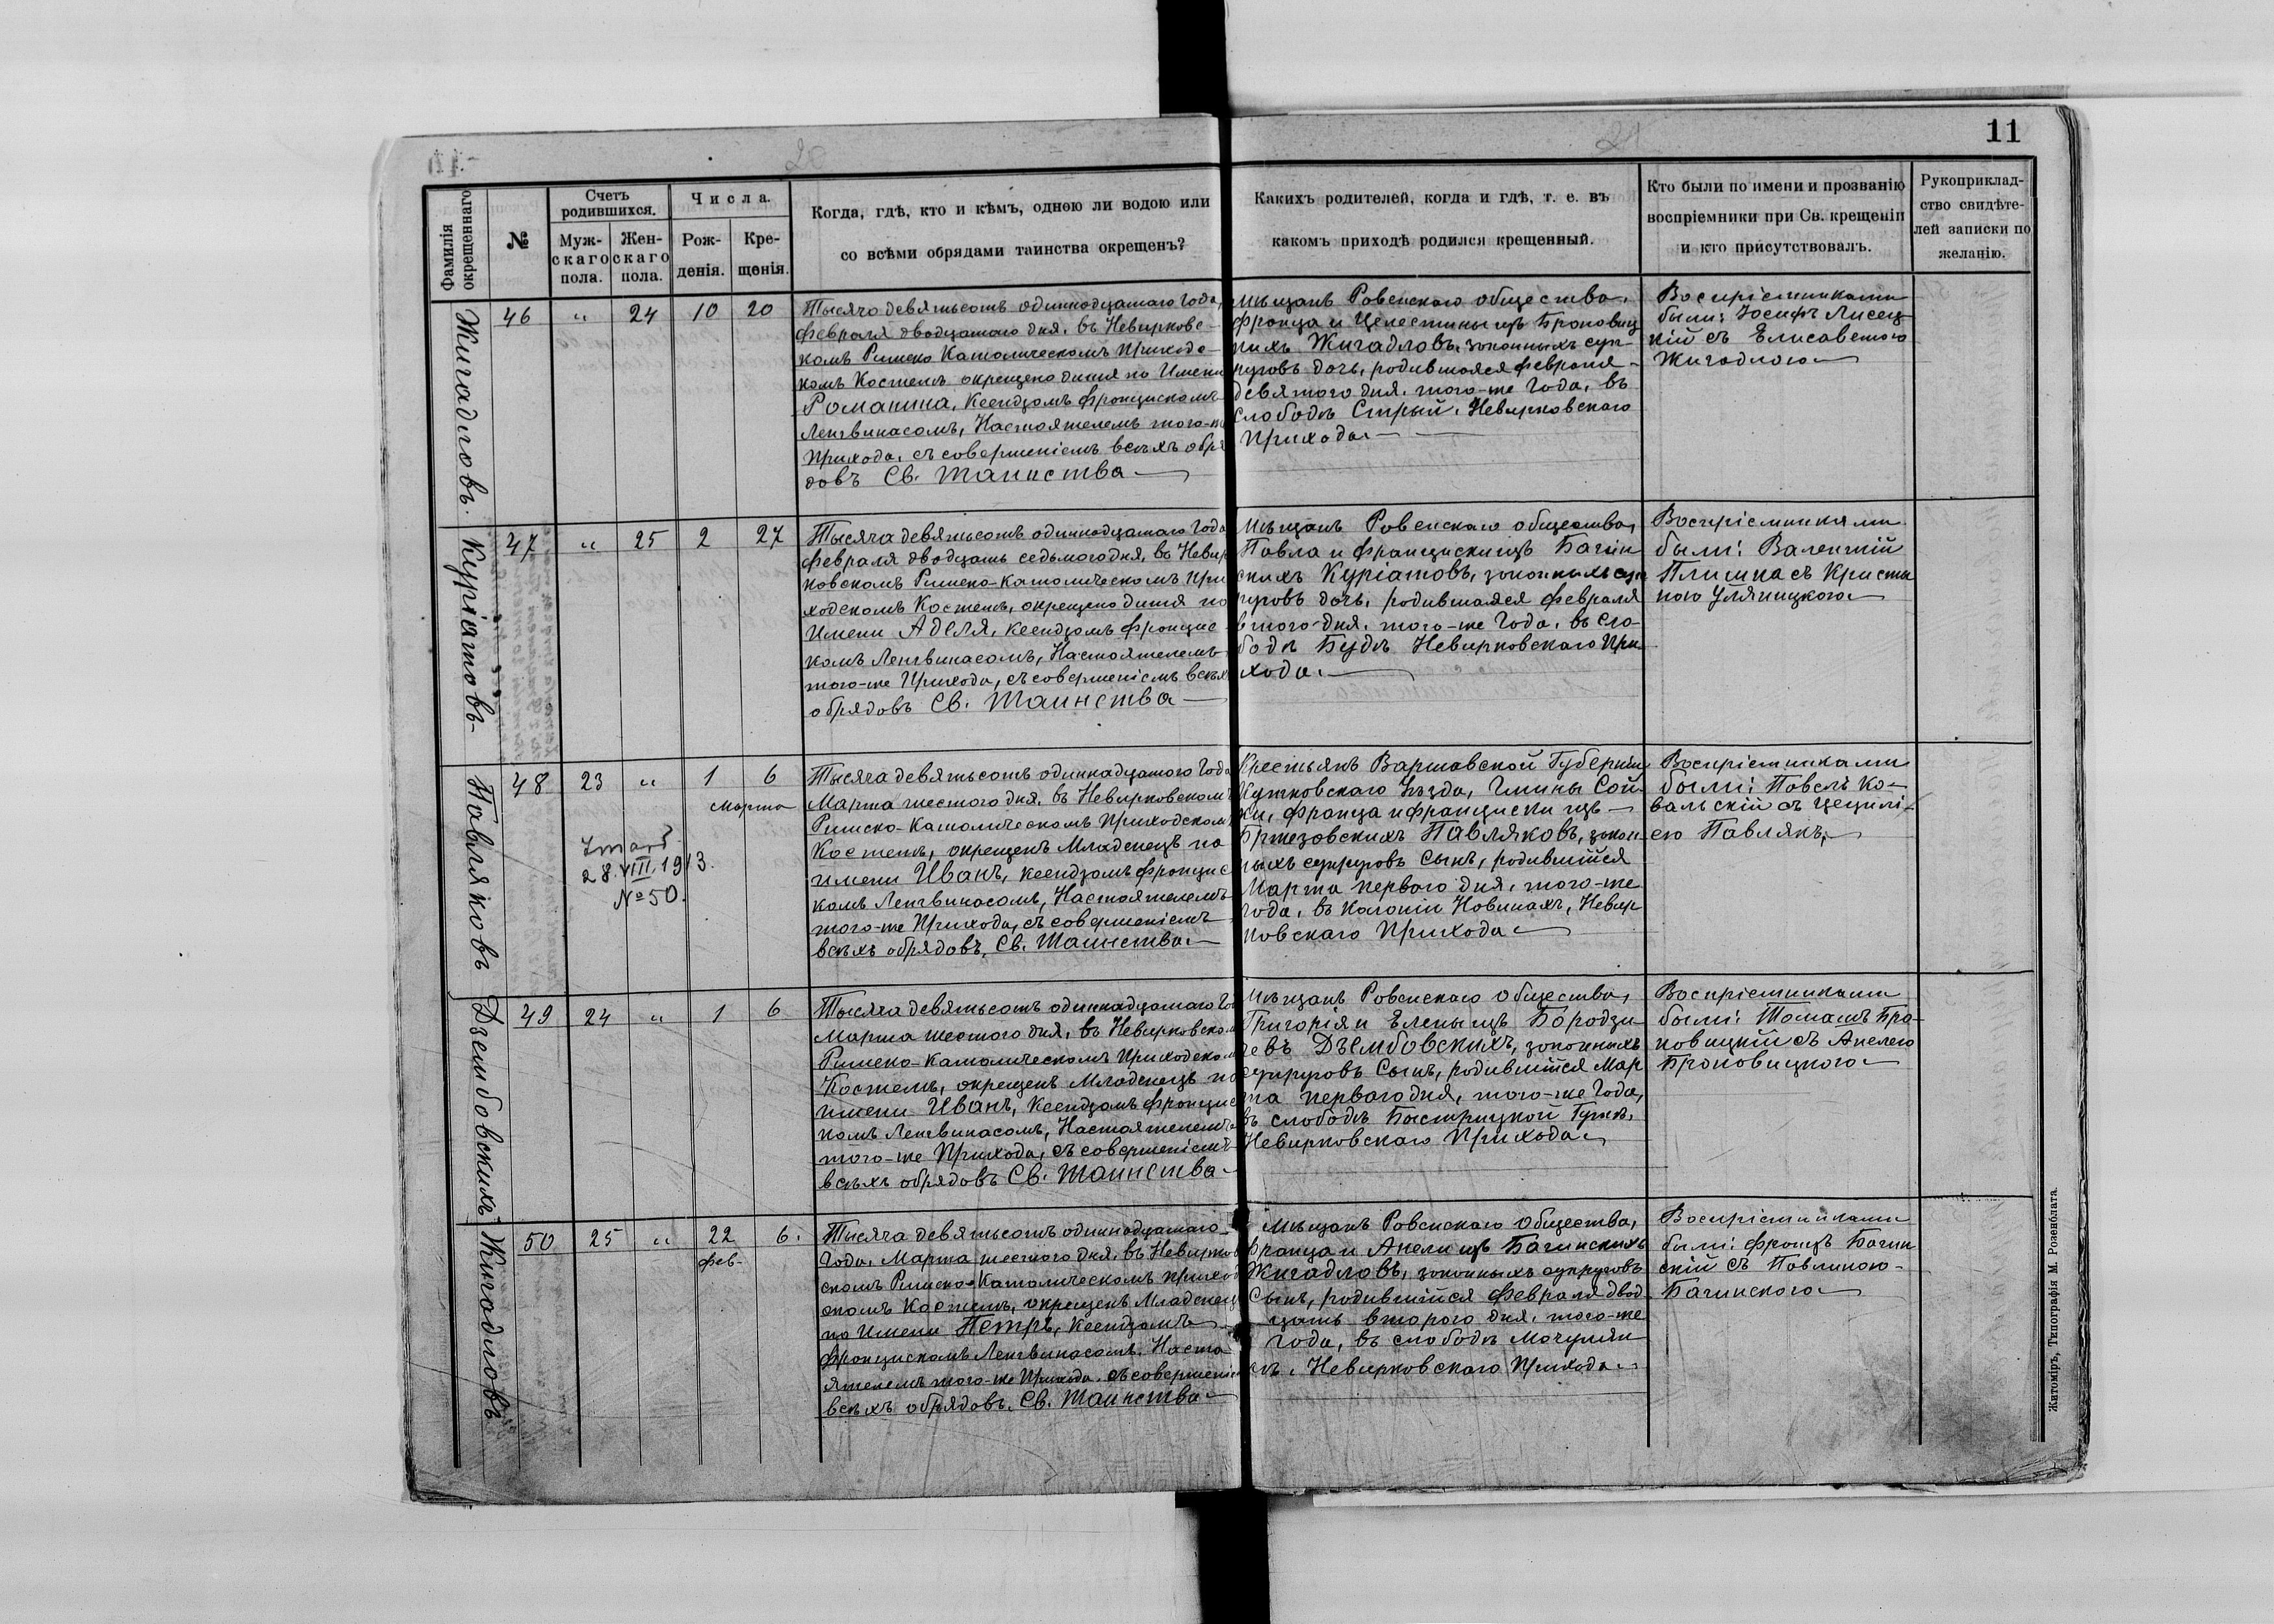 11
20
21
Фамилія окрещеннаго
№
Счетъ родившихся.
Мужскаго пола.
Женскаго пола.
Числа.
Рожденія.
Крещенія.
Когда, гдѣ, кто и кѣмъ, одною ли водою или
со всѣми обрядами таинства окрещенъ?
Какихъ родителей, когда и гдѣ, т. е. въ
какомъ приходѣ родился крещенный.
Кто были по имени и прозванію
воспріемники при Св. крещеніи
и кто присутствовалъ.
Рукоприклад-
ство свидѣте-
лей записки по
желанію.
Жигадловъ.
46 " 24 10 20
Тысяча девятьсотъ одиннадцатаго Года,
февраля двадцатаго дня, въ Невирковс-
комъ Римско Католическомъ Приходс-
комъ Костелѣ окрещено дитя по Имени
Романина, Ксендзомъ францискомъ
Ленгвинасомъ, Настоятелемъ того-же
Прихода, съ совершеніемъ всѣхъ обря
довъ Св. Таинства
Мѣщанъ Ровенскаго общества,
франца и Целестины изъ Броновиц
кихъ Жигадловъ, законныхъ суп-
руговъ дочь, родившаяся февраля
девятого дня, того-же Года, въ
Слободѣ Стрый, Невирковскаго
Прихода.
Воспріемниками
были: Іосифъ Лисец
кій съ Елисаветою
Жигадлою
Куріатовъ
47 " 25 2 27
Тысяча девятьсотъ одиннадцатаго Года
февраля двадцать седьмого дня, въ Невир
ковскомъ Римско-Католическомъ При
ходскомъ Костелѣ, окрещено дитя по
Имени Аделя, Ксендзомъ францис
комъ Ленгвинасомъ, Настоятелемъ
того-же Прихода, съ совершеніемъ всѣхъ
обрядовъ Св. Таинства
Мѣщанъ Ровенскаго общества,
Павла и францискиизъ Багин
скихъ Куріатовъ, законныхъ суп
руговъ дочь, родившаяся февраля
втого дня, того-же Года, въ Сло-
бодѣ Будѣ Невирковскаго При
хода.
Воспріемниками
были: Валентій
Плишка съ Кристи
ною Уляницкою
Павляковъ
48 23 " 1 6
Марта
Zmarł
28.VIII.1913.
№50.
Тысяча девятьсотъ одиннадцатого Года
Марта шестого дня, въ Невирковскомъ
Римско-Католическомъ Приходскомъ
Костелѣ, окрещенъ Младенецъ по
имени Иванъ, Ксендзомъ францис
комъ Ленгвинасомъ, Настоятелемъ
того-же Прихода, съ совершеніемъ
всѣхъ обрядовъ, Св. Таинства
Крестьянъ Варшавской Губерніи
Кутновскаго Уѣзда, Гмины Сой
ки, франца и франциски изъ
Бржезовскихъ Павляковъ, закон-
ныхъ супруговъ Сынъ, родившійся
Марта перваго дня, того-же
Года, въ Колоніи Новинахъ, Невир
ковскаго Прихода
Воспріемниками
были: Павелъ Ко-
вальскій съ Цецилі-
ею Павлякъ,
Дзембовскихъ
49 24 " 1 6
Тысяча девятьсотъ одиннадцатаго Го
Марта шестого дня, въ Невирковском
Римско-Католическомъ Приходском
Костелѣ, окрещенъ Младенецъ по
имени Иванъ, Ксендзомъ францис
комъ Ленгвинасомъ, Настоятелемъ
того-же Прихода, съ совершеніемъ
всѣхъ обрядовъ Св. Таинства
Мѣщанъ Ровенскаго Общества,
Григорія и Елены изъ Бородзи
чевъ Дзембовскихъ, законныхъ
супруговъ Сынъ, родившійся Мар
та перваго дня, того-же Года,
въ слободѣ Быстрицкой Гутѣ,
Невирковскаго Прихода
Воспріемниками
были: Томашъ Бра-
новицкій съ Анелею
Броновицкою
Жигадловъ
50 25 " 22 6.
Фев-
Тысяча девятьсотъ одиннадцатаго
Года, Марта шестого дня, въ Невирков
скомъ Римско-Католическомъ приход
скомъ Костелѣ, окрещенъ Младенец
по Имени Петръ, Ксендзомъ
францискомъ Ленгвинасомъ, Насто-
ятелемъ того-же Прихода, съ совершеніе
всѣхъ обрядовъ, Св. Таинства
Мѣщанъ Ровенскаго Общества,
франца и Анели изъ Багинскихъ
Жигадловъ, законныхъ супруговъ
Сынъ, родившійся февраля двад
цать второго дня, того-же
Года, въ слободѣ Мочулян
кѣ, Невирковскаго Прихода
Воспріемниками
были: францъ Багин
скій съ Павлиною
Багинскою
Житоміръ, Типографія М. Розенблата.